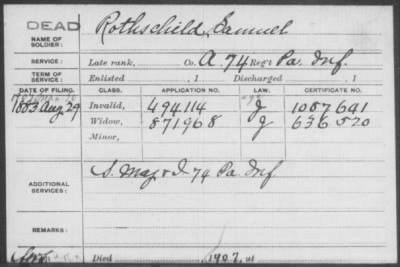 DEAD
NAME OF SOLDIER: Rothschild, Samuel
SERVICE: Late rank, Co. A. 74 Reg't Pa. Inf.
TERM OF SERVICE: Enlisted , 1 Discharged , 1
DATE OF FILING. CLASS. APPLICATION NO. LAW. CERTIFICATE NO.
1883 Aug 29 Invalid, 494114 J 1087641
Widow, 871968 J 636520
Minor,
ADDITIONAL SERVICES: S. Maj & I 74 Pa. Inf
REMARKS:
Died 1907, at